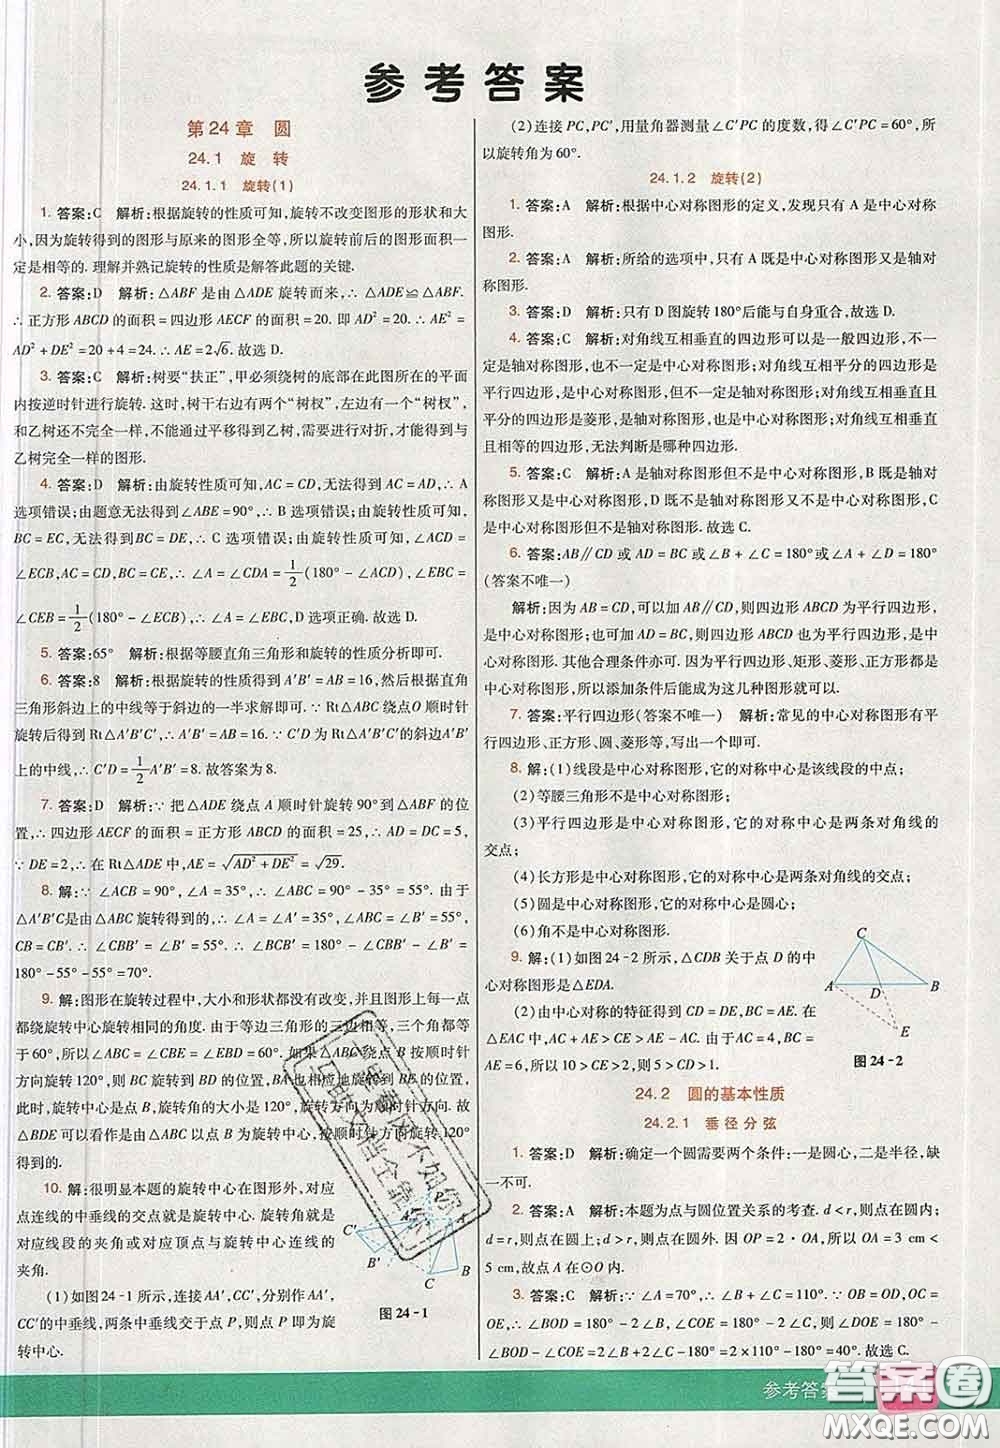 参考答案
第24章 圆
24.1 旋 转
24.1.1 旋转(1)
1. 答案:C 解析:根据旋转的性质可知,旋转不改变图形的形状和大
小,因为旋转得到的图形与原来的图形全等,所以旋转前后的图形面积一
定是相等的. 理解并熟记旋转的性质是解答此题的关键.
2. 答案:D 解析:△ABF 是由△ADE 旋转而来,∴△ADE≌△ABF.
∴ 正方形 ABCD 的面积=四边形 AECF 的面积=20. 即 AD²=20. ∴ AE²=
AD²+DE²=20+4=24. ∴ AE=2√6. 故选 D.
3. 答案:C 解析:树要“扶正”,甲必须绕树的底部在此图所在的平面
内按逆时针进行旋转. 这时,树干右边有两个“树杈”,左边有一个“树杈”,
和乙树还不完全一样,不能通过平移得到乙树,需要进行对折,才能得到与
乙树完全一样的图形.
4. 答案:D 解析:由旋转性质可知,AC=CD,无法得到 AC=AD,∴ A
选项错误;由题意无法得到∠ABE=90°,∴ B 选项错误;由旋转性质可知,
BC=EC,无法得到 BC=DE,∴ C 选项错误;由旋转性质可知,∠ACD=
∠ECB,AC=CD,BC=CE,∴ ∠A=∠CDA=1/2(180°-∠ACD),∠EBC=
∠CEB=1/2(180°-∠ECB),∴∠A=∠EBC,D 选项正确. 故选 D.
5. 答案:65° 解析:根据等腰直角三角形和旋转的性质分析即可.
6. 答案:8 解析:根据旋转的性质得到 A′B′=AB=16,然后根据直角
三角形斜边上的中线等于斜边的一半求解即可. ∵ Rt△ABC 绕点O 顺时针
旋转后得到 Rt△A′B′C′,∴ A′B′=AB=16. ∵ C′D 为 Rt△A′B′C′的斜边A′B′
上的中线,∴ C′D=1/2A′B′=8. 故答案为 8.
7. 答案:D 解析:∵ 把△ADE 绕点 A 顺时针旋转 90°到△ABF 的位
置,∴ 四边形 AECF 的面积=正方形 ABCD 的面积=25,∴ AD=DC=5,
∵ DE=2,∴ 在 Rt△ADE 中,AE=√(AD²+DE²)=√29.
8. 解:∵ ∠ACB=90°,∠A=35°,∴ ∠ABC=90°-35°=55°. 由于
△A′B′C是由△ABC 旋转得到的,∴ ∠A′=∠A=35°,∠ABC=∠B′=55°,
CB=CB′. ∴ ∠CBB′=∠B′=55°. ∴ ∠BCB′=180°-∠CBB′-∠B′=
180°-55°-55°=70°.
9. 解:图形在旋转过程中,大小和形状都没有改变,并且图形上每一点
都绕旋转中心旋转相同的角度. 由于等边三角形的三边相等,三个角都等
于60°,所以∠ABC=∠CBE=∠EBD=60°. 如果△ABC 绕点 B 按顺时针
方向旋转120°,则 BC 旋转到 BD 的位置,BA 也相应地旋转到 BE 的位置,
此时,旋转中心是点 B,旋转角的大小是 120°,旋转方向为顺时针方向. 故
△BDE 可以看作是由△ABC 以点 B 为旋转中心、按顺时针方向旋转120°
得到的.
10. 解:很明显本题的旋转中心在图形外,对应
点连线的中垂线的交点就是旋转中心,旋转角就是
对应线段的夹角或对应顶点与旋转中心连线的
夹角.
(1)如图 24-1 所示,连接 AA′,CC′,分别作 AA′,
CC′的中垂线,两条中垂线交于点 P,则点 P 即为旋
转中心.
C′
B′
A
C
B
图 24-1
(2)连接 PC,PC′,用量角器测量∠C′PC 的度数,得∠C′PC=60°,所
以旋转角为 60°.
24.1.2 旋转(2)
1. 答案:A 解析:根据中心对称图形的定义,发现只有 A 是中心对称
图形.
2. 答案:A 解析:所给的选项中,只有 A 既是中心对称图形又是轴对
称图形.
3. 答案:D 解析:只有 D 图旋转180°后能与自身重合,故选 D.
4. 答案:C 解析:对角线互相垂直的四边形可以是一般四边形,不一
定是轴对称图形,也不一定是中心对称图形;对角线互相平分的四边形是
平行四边形,是中心对称图形,不一定是轴对称图形;对角线互相垂直且
平分的四边形是菱形,是轴对称图形,也是中心对称图形;对角线互相垂直
且相等的四边形,无法判断是哪种四边形.
5. 答案:C 解析:A 是轴对称图形但不是中心对称图形,B 既是轴对
称图形又是中心对称图形,D 既不是轴对称图形又不是中心对称图形,C
是中心对称图形但不是轴对称图形. 故选 C.
6. 答案:AB∥CD 或 AD=BC 或∠B+∠C=180°或∠A+∠D=180°
(答案不唯一)
解析:因为 AB=CD,可以加 AB∥CD,则四边形 ABCD 为平行四边形,
是中心对称图形;也可以加 AD=BC,则四边形 ABCD 也为平行四边形,是中
心对称图形. 其他合理条件亦可. 因为平行四边形、矩形、菱形、正方形都是中
心对称图形,所以添加条件后能成为这几种图形就可以.
7. 答案:平行四边形(答案不唯一) 解析:常见的中心对称图形有平
行四边形、正方形、圆、菱形等,写出一个即可.
8. 解:(1)线段是中心对称图形,它的对称中心是该线段的中点;
(2)等腰三角形不是中心对称图形;
(3)平行四边形是中心对称图形,它的对称中心是两条对角线的
交点;
(4)长方形是中心对称图形,它的对称中心是两条对角线的交点;
(5)圆是中心对称图形,它的对称中心是圆心;
(6)角不是中心对称图形.
9. 解:(1)如图 24-2 所示,△CDB 关于点 D 的中
心对称图形是△EDA.
(2)由中心对称的性质可得 CD=DE,BC=AE. 在
△EAC 中,AC+AE>CE>AE-AC. 由于 AC=4,BC=
AE=6,所以 10>CE>2,所以 10>2CD>2,所以 5>CD>1.
C
A D B
E
图 24-2
24.2 圆的基本性质
24.2.1 垂径分弦
1. 答案:D 解析:确定一个圆需要两个条件:一是圆心,二是半径,缺
一不可.
2. 答案:A 解析:本题为点与圆位置关系的考查. d<r,则点在圆内;
d=r,则点在圆上;d>r,则点在圆外. 因 OP=2·OA,所以 OA=3 cm<
5 cm,故点 A 在⊙O 内.
3. 答案:C 解析:∵ ∠A=70°,∴ ∠B+∠C=110°. ∵ OB=OD,
OE=OC,∴ ∠BOD=180°-2∠B,∠COE=180°-2∠C,∴∠DOE=180°
-∠BOD-∠COE=2(∠B+∠C)-180°=2×110°-180°=40°. 故选 C.
参考答案
答案圈
MXQE.COM